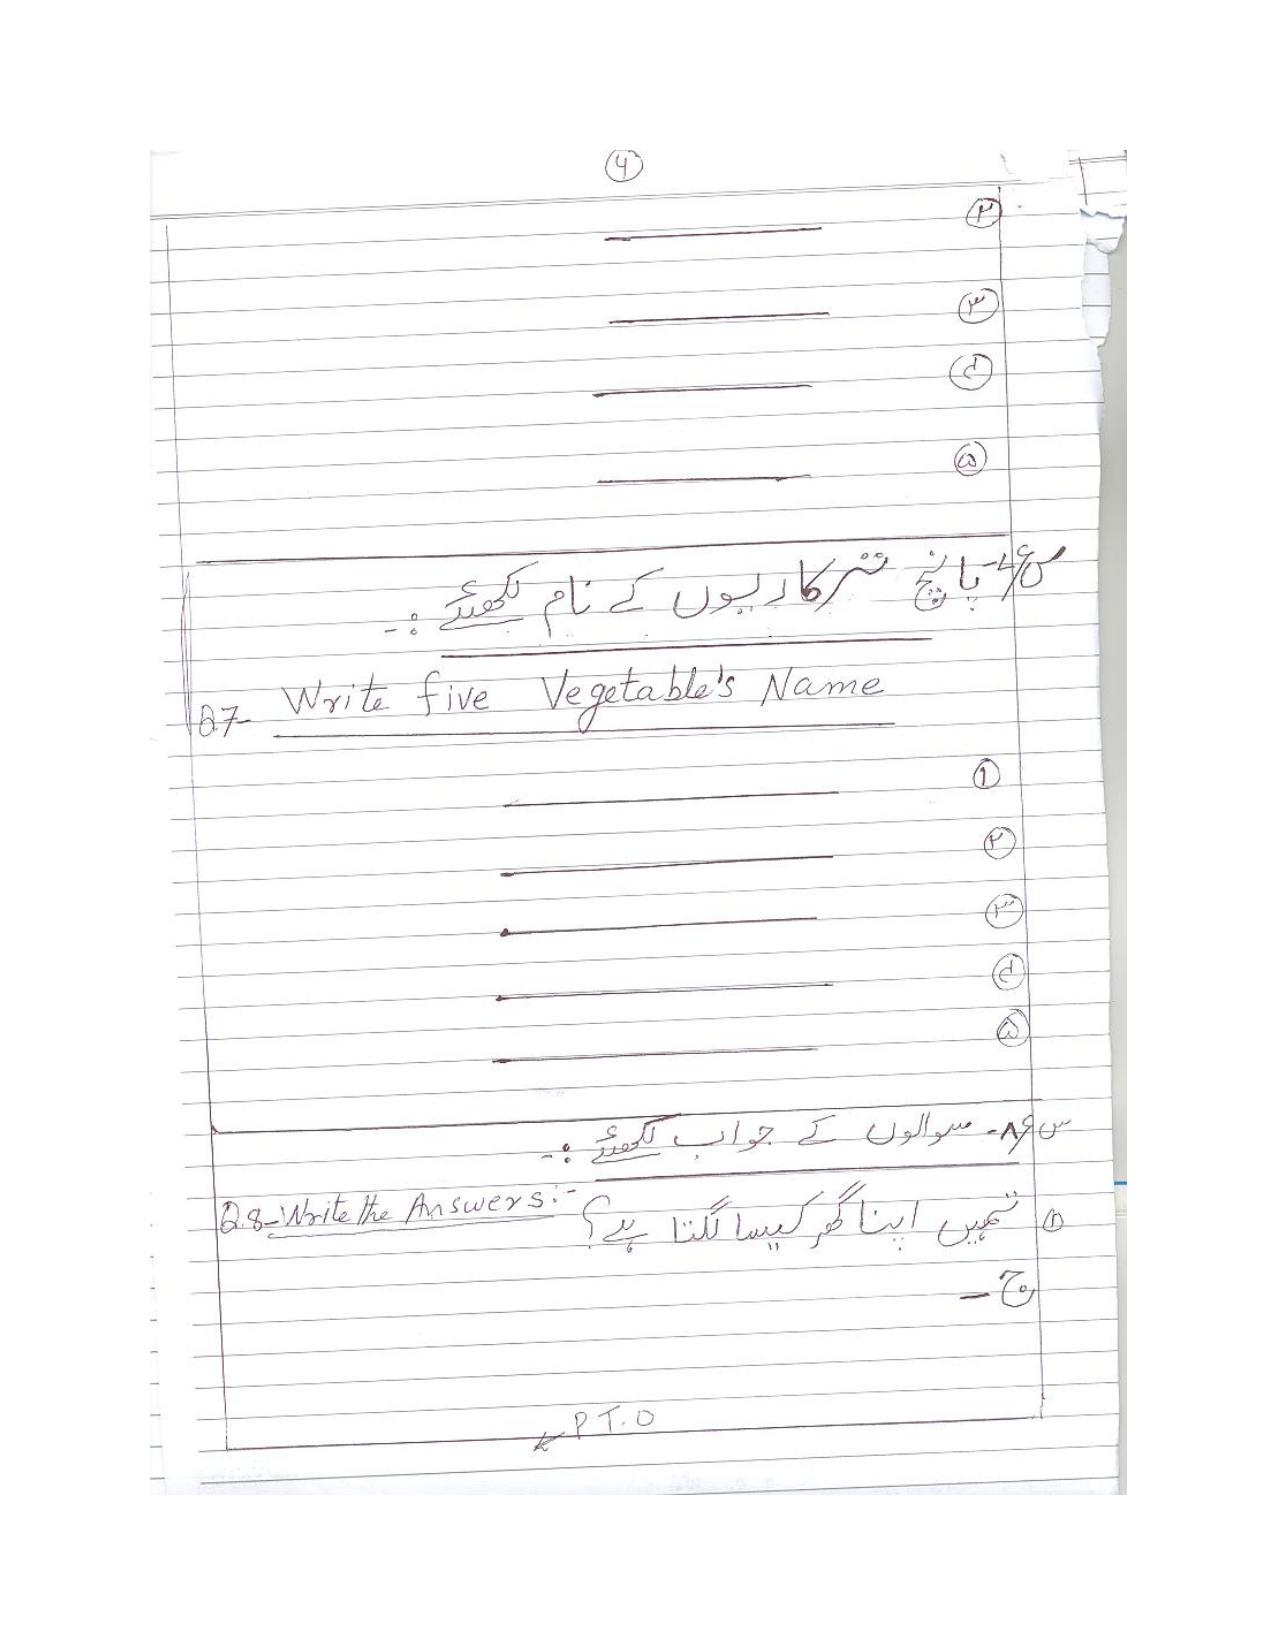 ④
۲
۳
۴
۵
س۷- پانچ ترکاریوں کے نام لکھئے :-
Q7- Write five Vegetable's Name
۱
۲
۳
۴
۵
س۸- سوالوں کے جواب لکھئے :-
Q.8- Write the Answers:-
۱ تمہیں اپنا گھر کیسا لگتا ہے؟
ج -
P.T.O